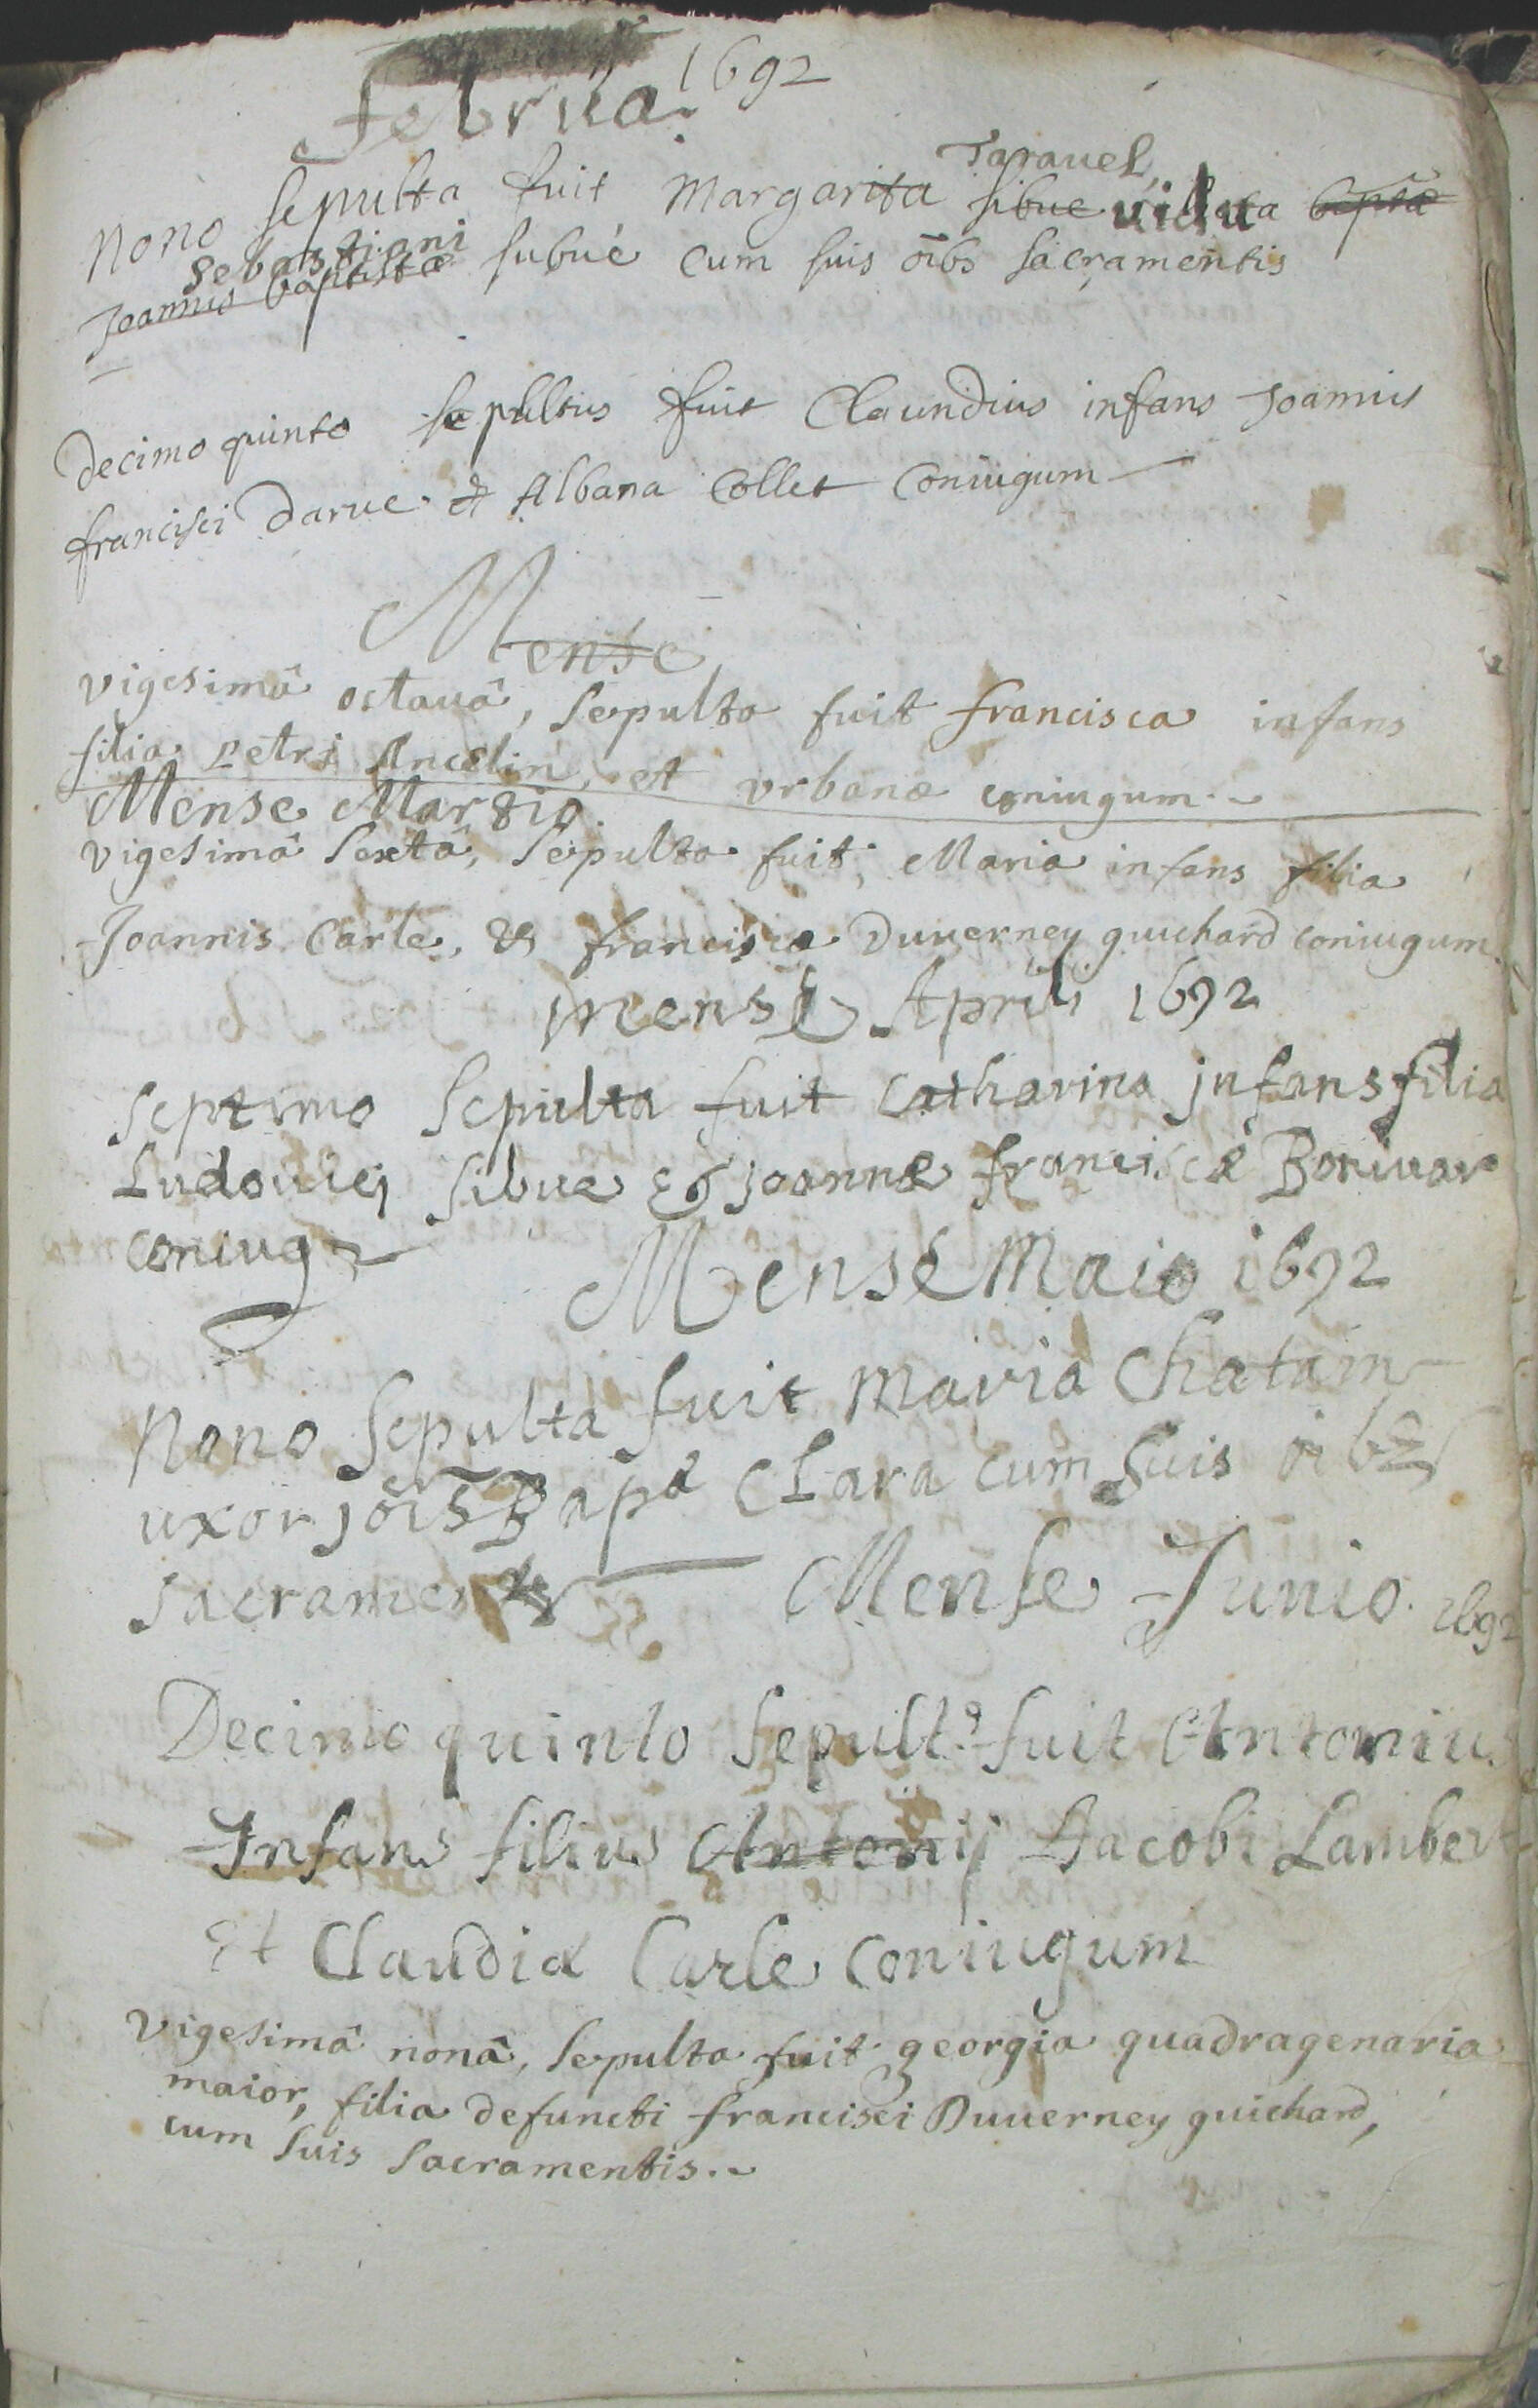 februa. 1692
Taravel,
Nono sepulta fuit Margarita sibue vidua baptæ
sebastiani
Joannis baptistæ subué cum suis oībs sacramentis
Decimo quinto sepultus fuit Claundius infans Joannis
francisci Darue & Albana Collet coniugum
Mense
vigesimâ octauâ, sepulta fuit francisca infans
filia Petri Ancelin, et vrbanæ coniugum.
Mense Martio.
vigesimâ sextâ, sepulta fuit, Maria infans filia
Joannis Carle, & francisca Duuerney guichard coniugum.
mense Aprili 1692
septimo sepulta fuit Catharina infans filia
Ludouicj sibue & Joannæ franciscæ Boriuar
coniug
Mense Maio 1692
Nono sepulta fuit Maria Chatain
uxor jōīs Bapæ Clara cum suis oībs
sacramentis
Mense Junio. 1692
Decimo quinto sepult9 fuit Antonius
Infans filius Antonij Jacobi Lambert
Et Claudiæ Carle coniugum
vigesimâ nonâ, sepulta fuit georgia quadragenaria
maior, filia defuncti francisci Duuerney guichard,
cum suis sacramentis.